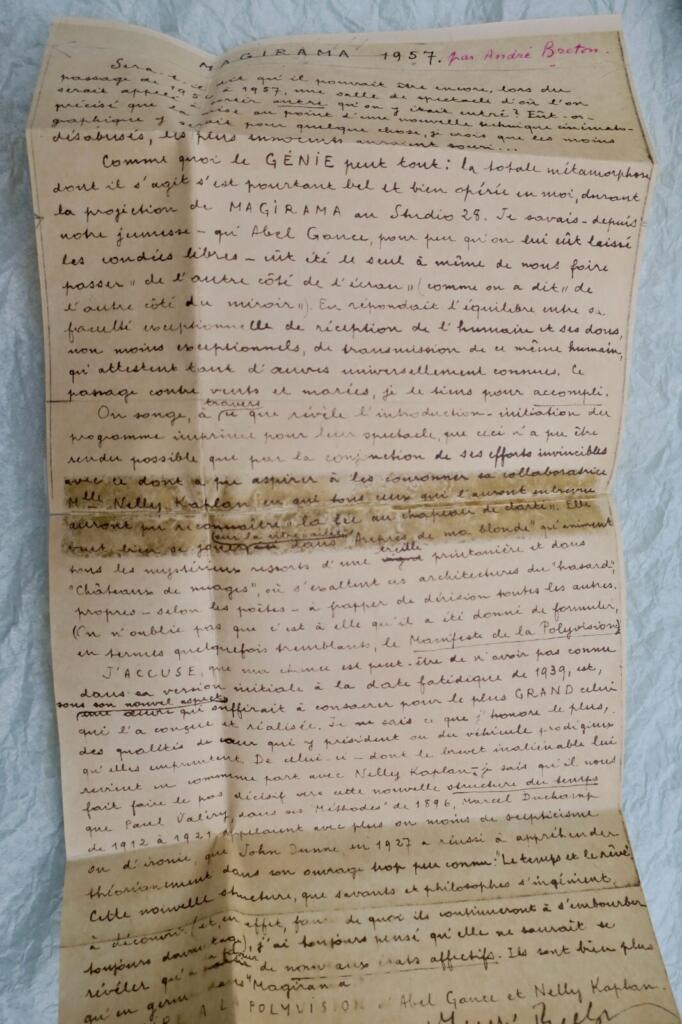 MAGIRAMA 1957. par André Breton.
Sera-t-il dit qu'il pouvait être encore, lors du
passage de 1956 à 1957, une salle de spectacle d'où l'on
serait appelé à sortir autre qu'on y était entré? Eût-on
précisé que la mise au point d'une nouvelle technique cinémato-
graphique y serait pour quelque chose, je crois que les moins
désabusés, les plus innocents auraient souri...
Comme quoi le GÉNIE peut tout: la totale métamorphose
dont il s'agit s'est pourtant bel et bien opérée en moi, durant
la projection de MAGIRAMA au Studio 28. Je savais - depuis
notre jeunesse - qu'Abel Gance, pour peu qu'on lui eût laissé
les coudées libres - eût été le seul à même de nous faire
passer "de l'autre côté de l'écran" (comme on a dit "de
l'autre côté du miroir"). En répondait l'équilibre entre sa
faculté exceptionnelle de réception de l'humain et ses dons,
non moins exceptionnels, de transmission de ce même humain,
qu'attestent tant d'œuvres universellement connues. Ce
passage contre vents et marées, je le tiens pour accompli.
On songe, à travers ce que révèle l'introduction-initiation du
programme imprimée pour leur spectacle, que ceci n'a pu être
rendu possible que par la conjonction de ses efforts invincibles
avec ce dont a pu aspirer à les couronner sa collaboratrice
Mlle Nelly Kaplan en qui tous ceux qui l'auront entrevue
auront pu reconnaître "la fée au chapeau de clarté". Elle
veut bien se jouer dans "Auprès de ma blonde" qu'animent
tous les mystérieux ressorts d'une treille printanière et dans
"Châteaux de nuages", où s'exaltent ces architectures du "hasard"
propres - selon les poètes - à frapper de dérision toutes les autres.
(On n'oublie pas que c'est à elle qu'il a été donné de formuler,
en termes quelquefois tremblants, le Manifeste de la Polyvision).
J'ACCUSE, que ma chance est peut-être de n'avoir pas connu
dans sa version initiale à la date fatidique de 1939, est,
sous son nouvel aspect
une œuvre qui suffirait à consacrer pour le plus GRAND celui
qui l'a conçue et réalisée. Je ne sais ce que j'honore le plus,
des qualités de cœur qui y président ou du véhicule prodigieux
qu'elles empruntent. De celui-ci - dont le brevet inaliénable lui
revient en commune part avec Nelly Kaplan - je sais qu'il nous
fait faire le pas décisif vers cette nouvelle structure du temps
que Paul Valéry, dans ses "Méthodes" de 1896, Marcel Duchamp
de 1912 à 1921, appelaient avec plus ou moins de scepticisme
ou d'ironie, que John Dunne en 1927 a réussi à appréhender
théoriquement dans son ouvrage trop peu connu: "Le temps et le rêve".
Cette nouvelle structure, que savants et philosophes s'ingénient
à découvrir (et, en effet, faute de quoi ils continueront à s'embourber
toujours davantage), j'ai toujours pensé qu'elle ne saurait se
révéler qu'à partir de nouveaux états affectifs. Ils sont bien plus
qu'en germe dans "Magirama"
A LA POLYVISION d'Abel Gance et Nelly Kaplan.
André Breton